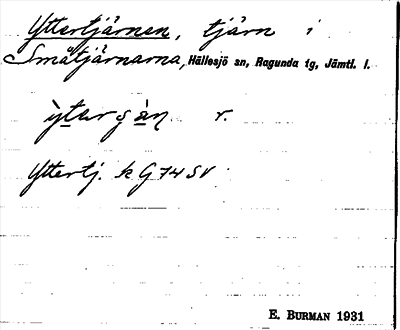 Yttertjärnen, tjärn i
Småtjärnarna, Hällesjö sn, Ragunda tg, Jämtl. l.
r.
Yttertj. k G74SV
E. BURMAN 1931